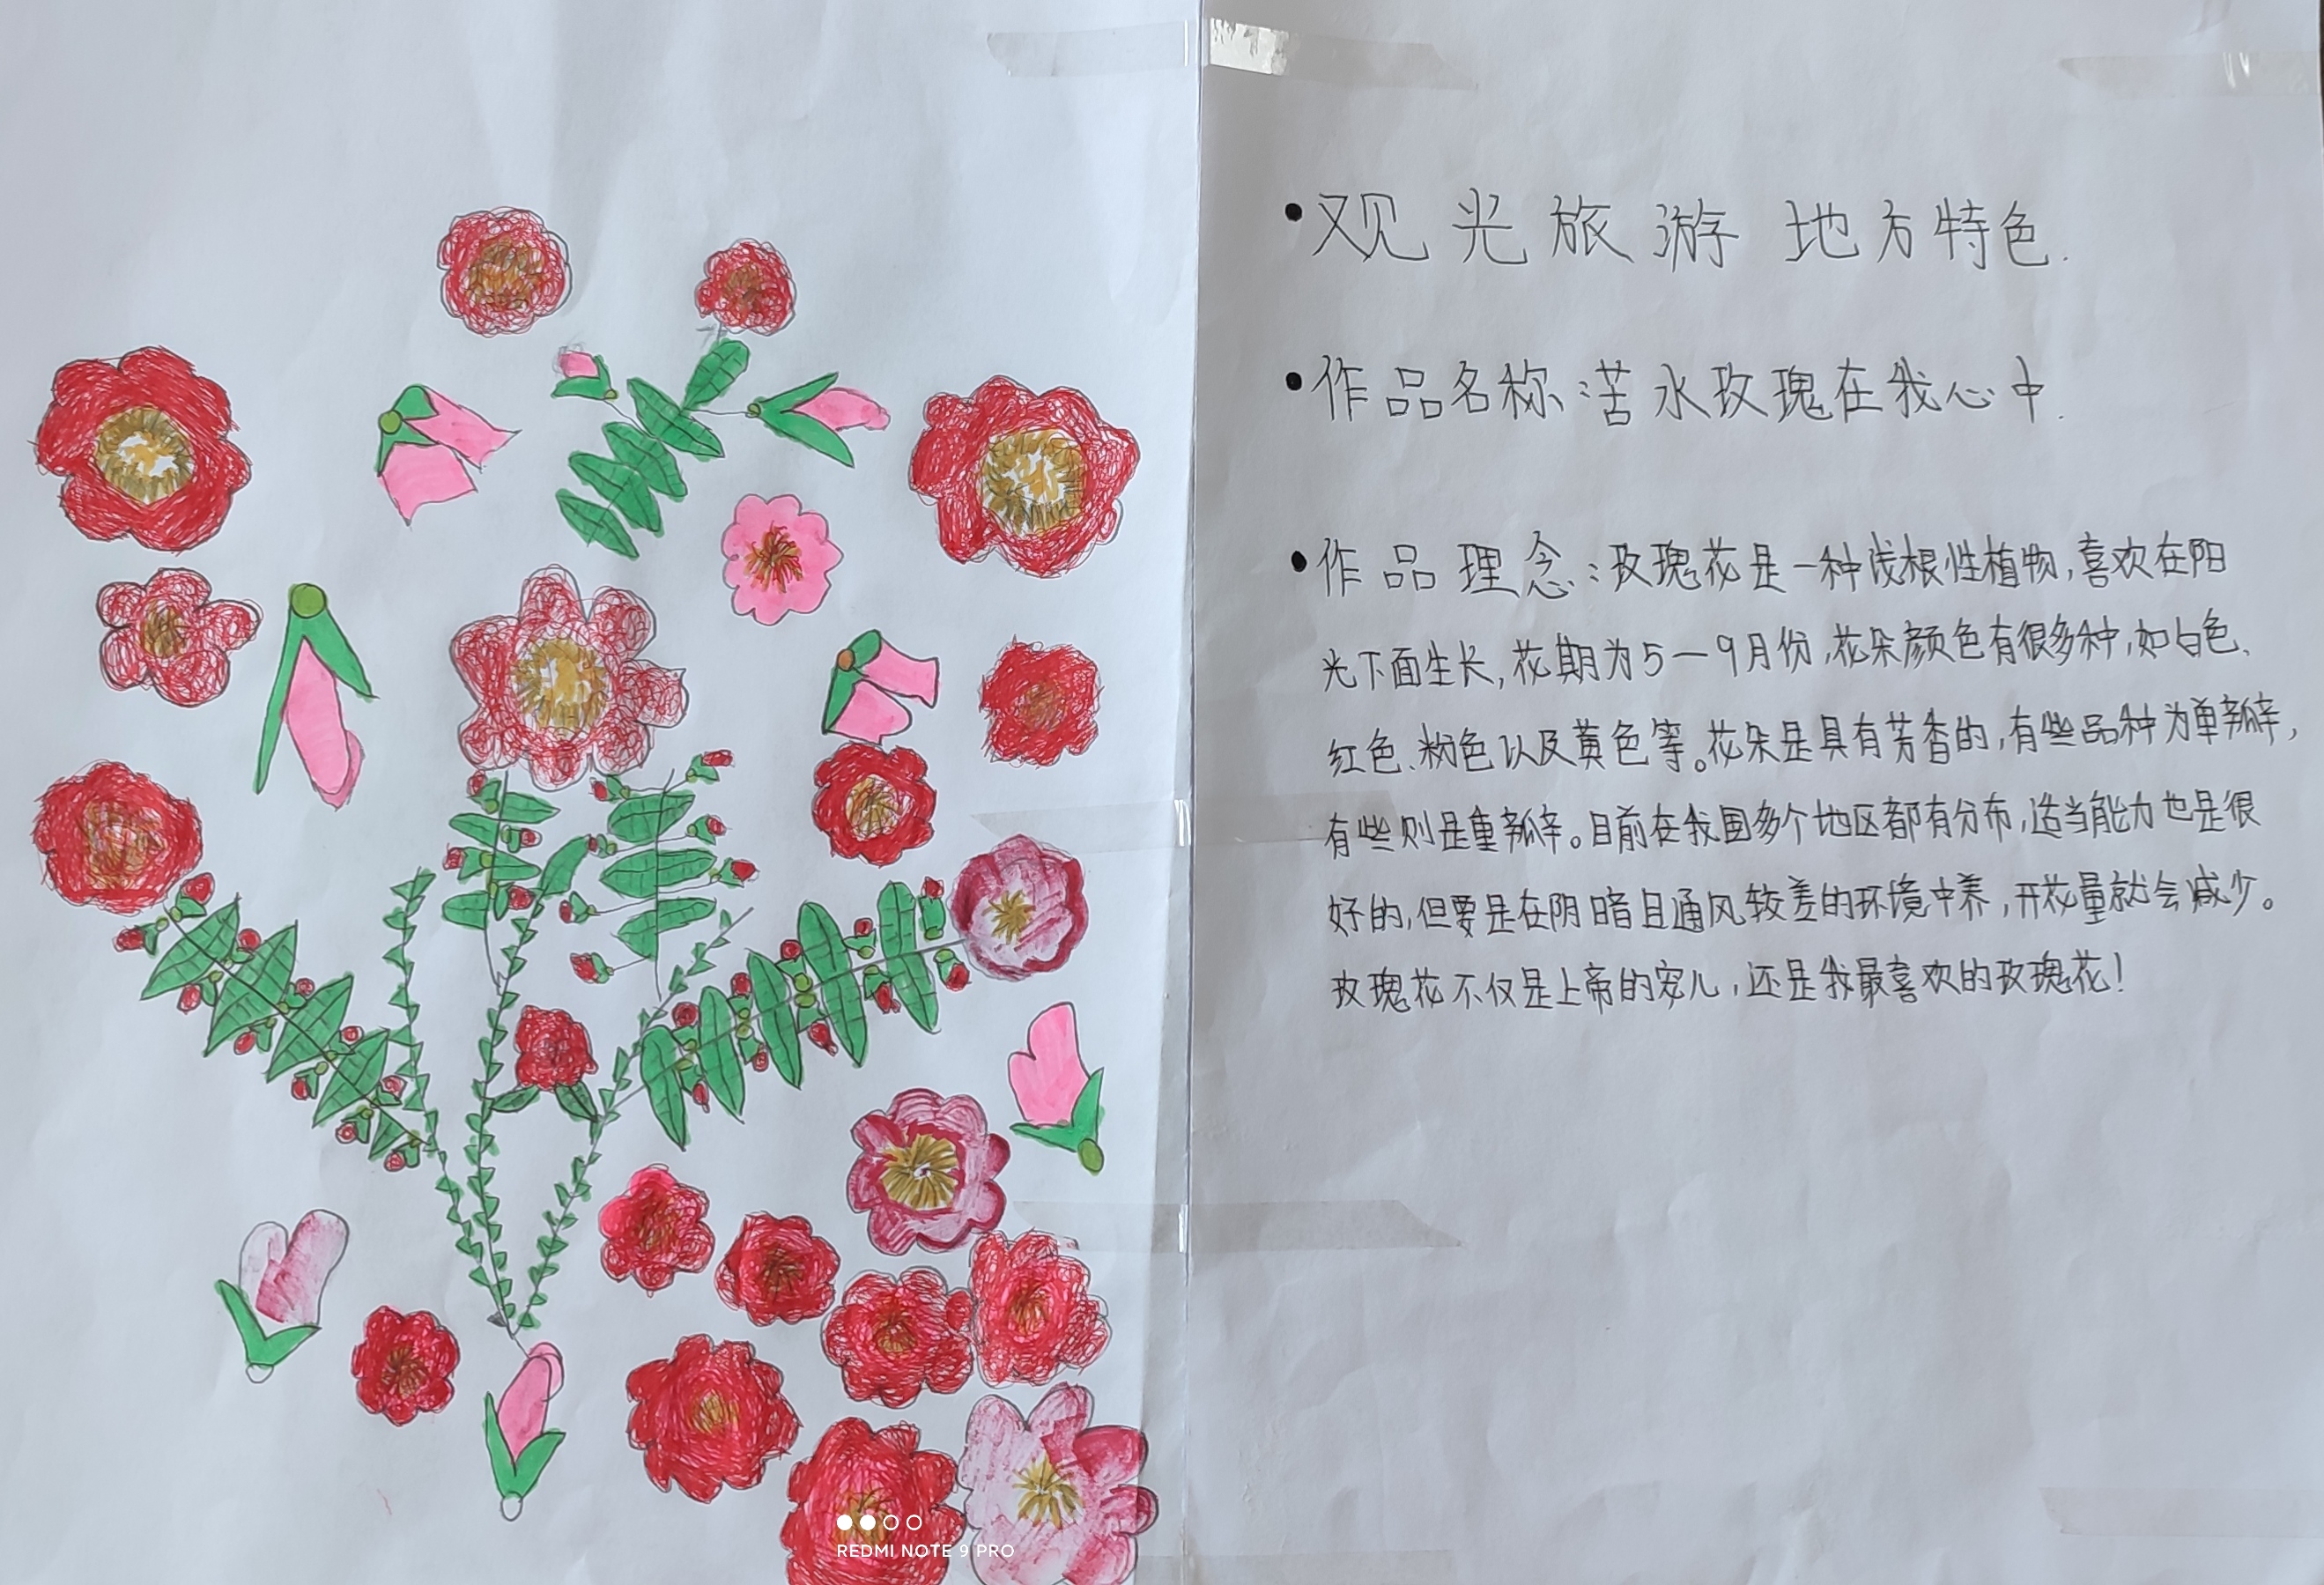 •观光旅游 地方特色.
•作品名称:苦水玫瑰在我心中.
•作品理念:玫瑰花是一种浅根性植物,喜欢在阳
光下面生长,花期为5—9月份,花朵颜色有很多种,如白色、
红色、粉色以及黄色等。花朵是具有芳香的,有些品种为单瓣,
有些则是重瓣。目前在我国多个地区都有分布,适当能力也是很
好的,但要是在阴暗且通风较差的环境中养,开花量就会减少。
玫瑰花不仅是上帝的宠儿,还是我最喜欢的玫瑰花!
REDMI NOTE 9 PRO